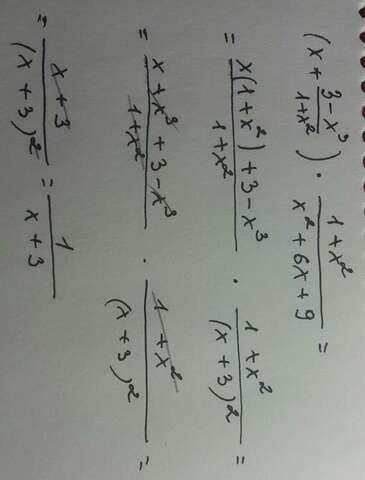 (x + (3 - x³)/(1 + x²)) · (1 + x²)/(x² + 6x + 9) =
= (x(1 + x²) + 3 - x³)/(1 + x²) · (1 + x²)/(x + 3)² =
= (x + x³ + 3 - x³)/(1 + x²) · (1 + x²)/(x + 3)² =
= (x + 3)/(x + 3)² = 1/(x + 3)